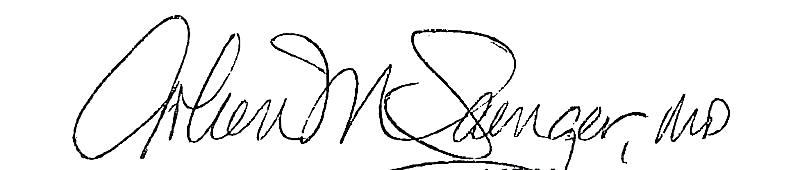 Arlien M Saenger, MD